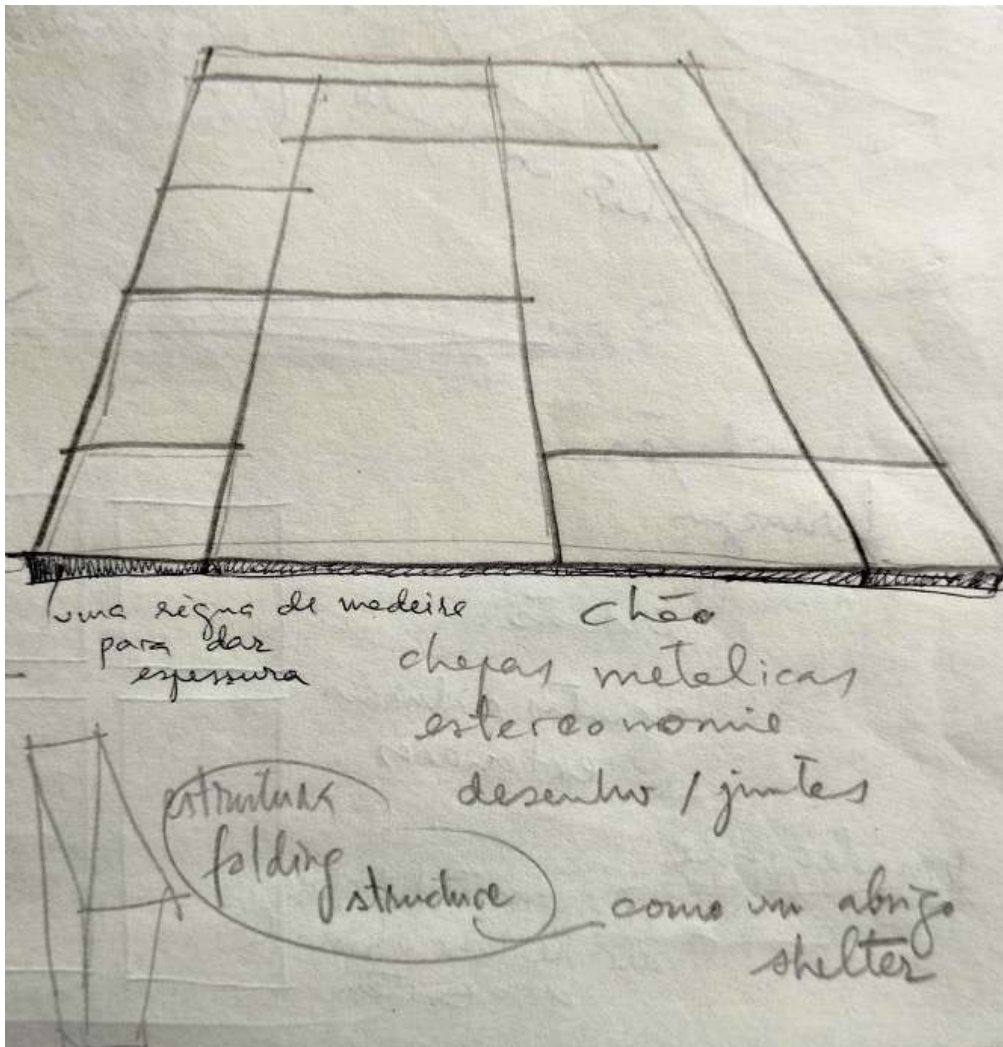 uma régua de madeira
para dar
espessura
chão
chapas metalicas
estereonomie
desenho / juntas
estrutura
folding
structure
como um abrigo
shelter